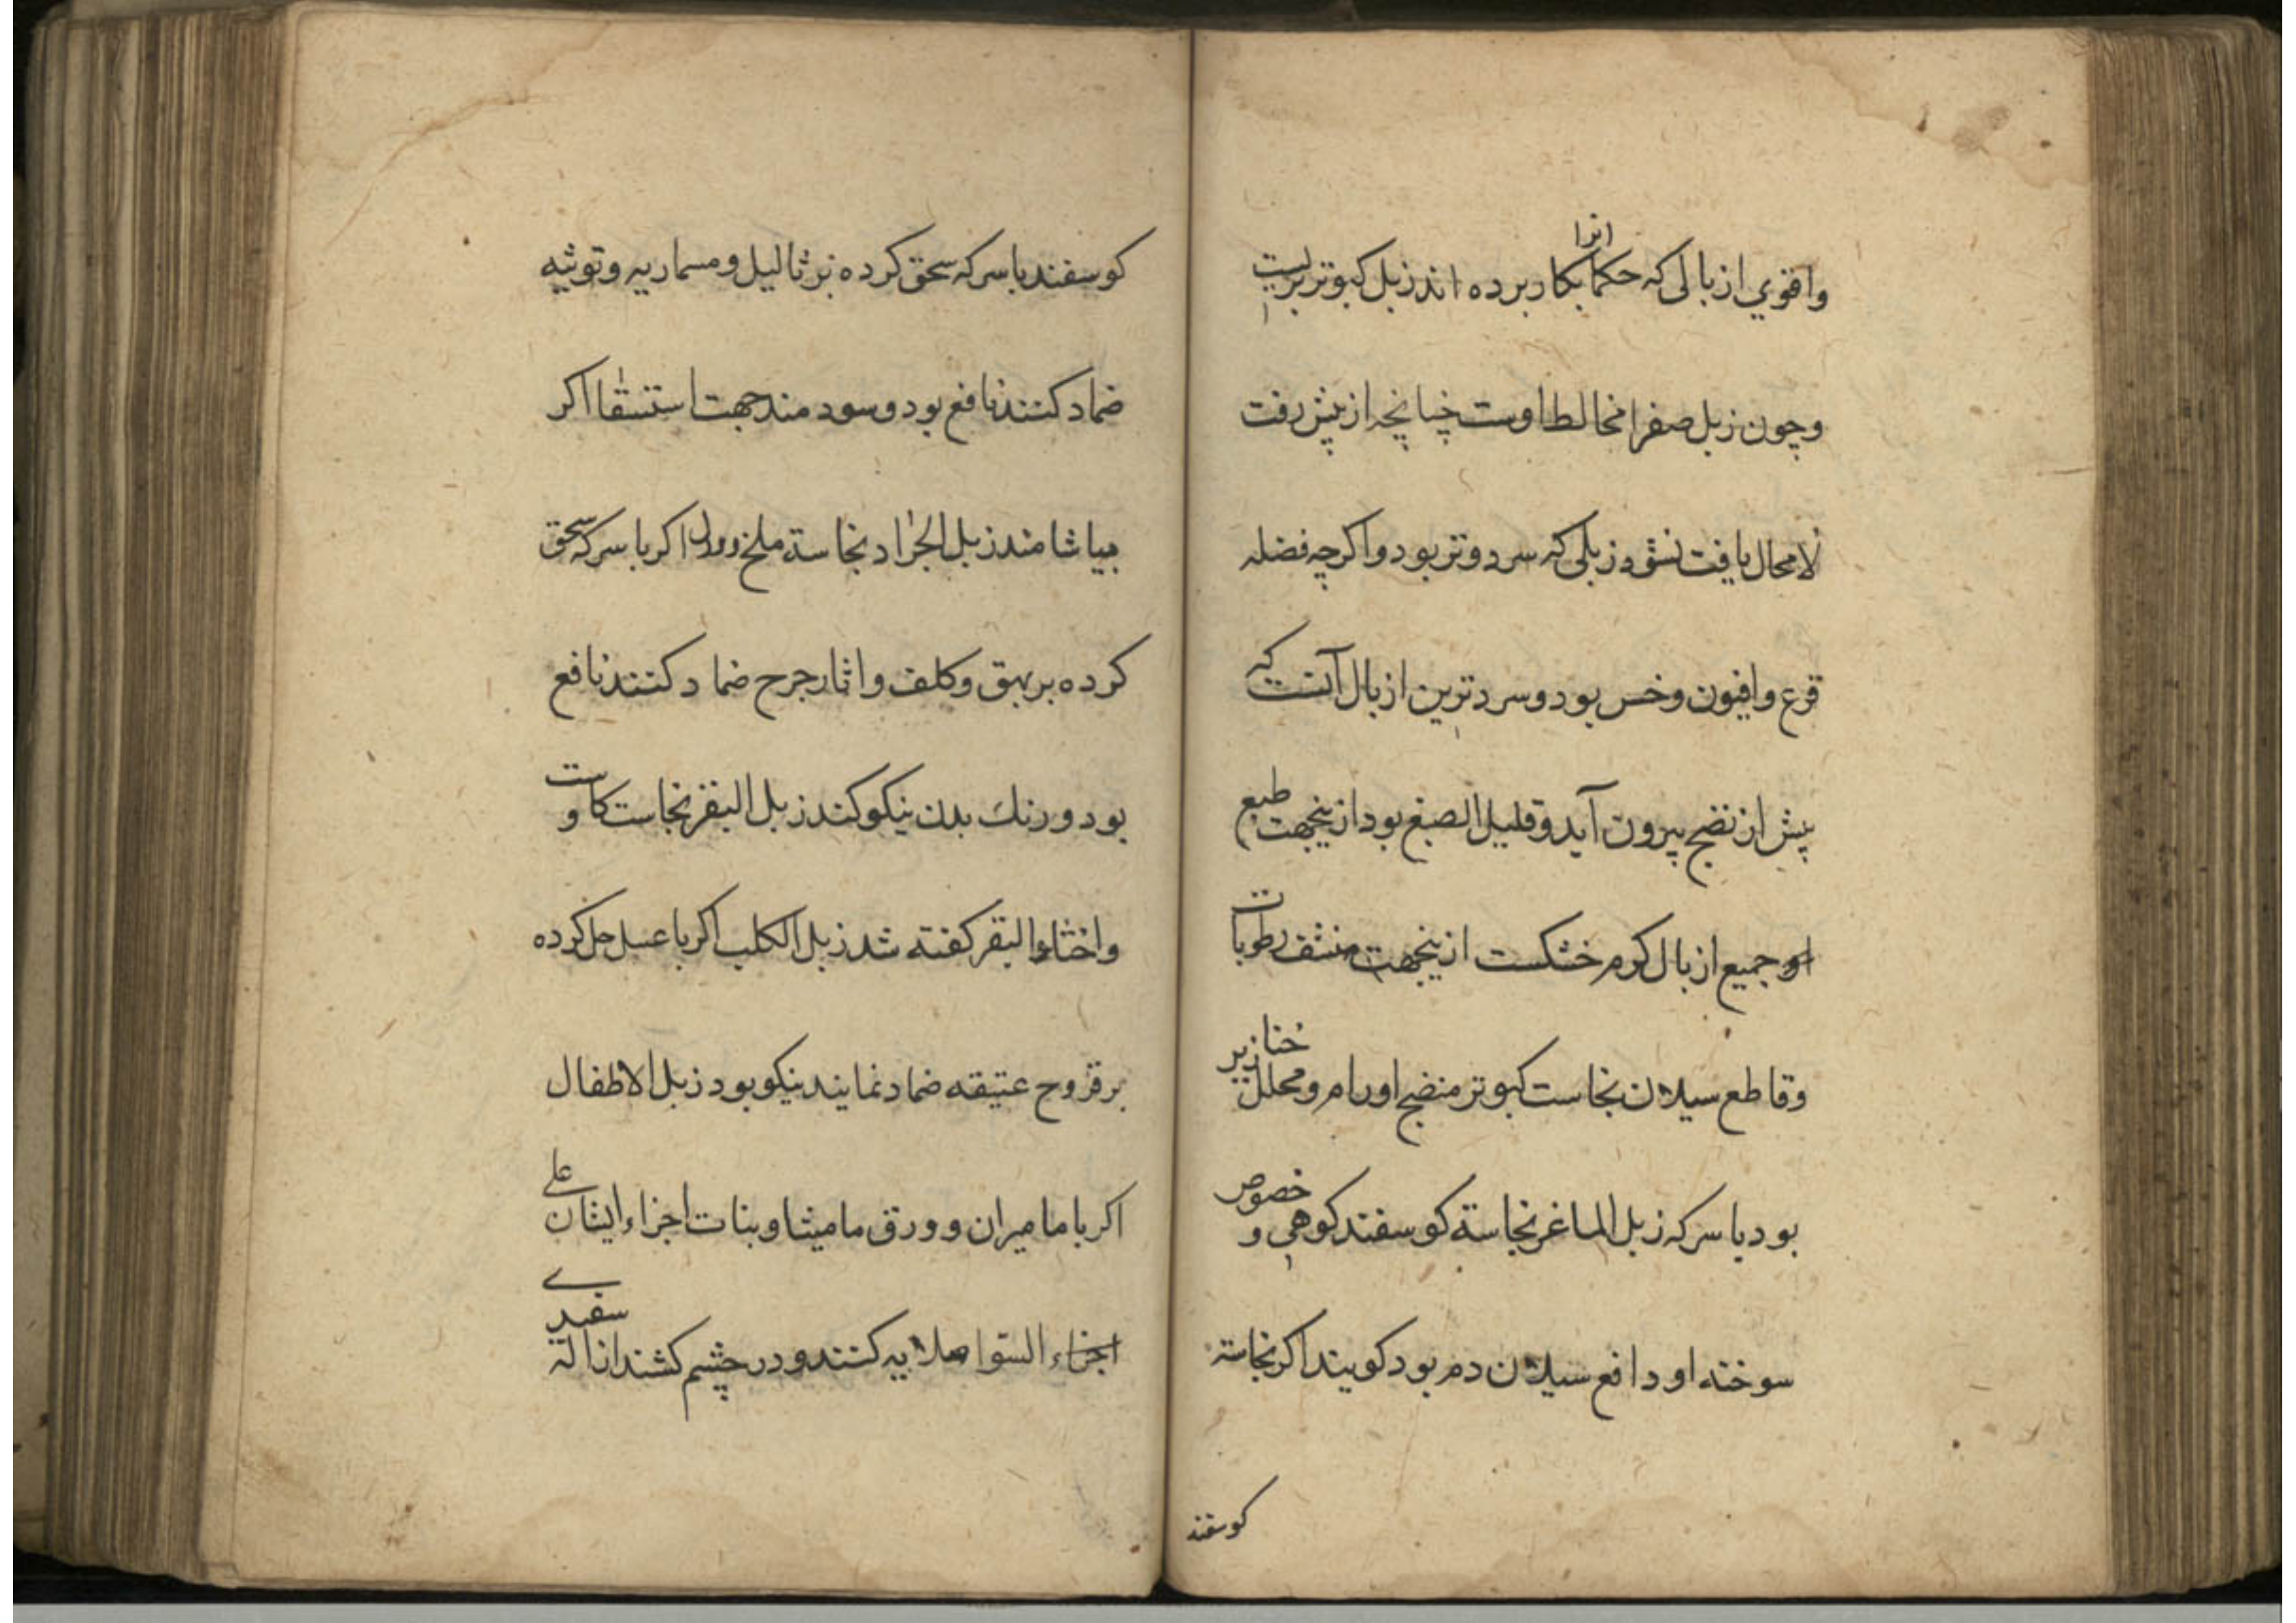 واقوي ازبالی که حکما انرا بکار برده اند زبل کبوتر بریست
وچون زبل صفرا مخالط اوست چنانچه از پیش رفت
لامحال یافت نشود زبلی که سرد و تر بود واکرچه فضله
قرع وافیون وخس بود وسردترین ازبال آنست که
پیش از نضج بیرون آید وقلیل الصبغ بود ازینجهت طبع
او جمیع ازبال کرم خشکست ازینجهت منشف رطوبات
وقاطع سیلان نجاست کبوتر منضج اورام ومحلل خنازیر
بود با سرکه زبل الماغر نجاسة کوسفند کوهی و خصوص
سوخته او دافع سیلان دم بود کویند اکر نجاسة
کوسفند
کوسفند با سرکه سحق کرده بر ثالیل ومسماریه وتوثیه
ضماد کنند نافع بود وسود مند جهت استسقا اکر
بیاشامند زبل الجراد نجاسة ملخ اکر با سرکه سحق
کرده بر بهق وکلف واثار جرح ضماد کنند نافع
بود ورنك بدن نیکو کند زبل البقر نجاست کاوست
واخثاء البقر کفته شد زبل الکلب اکر با عسل حل کرده
بر قروح عتیقه ضماد نمایند نیکو بود زبل الاطفال
اکر با مامیران وورق مامیثا وبنات اجزاء ایشان علی
اجزاء السوا صلایه کنند ودر چشم کشند ازالة سفیدے